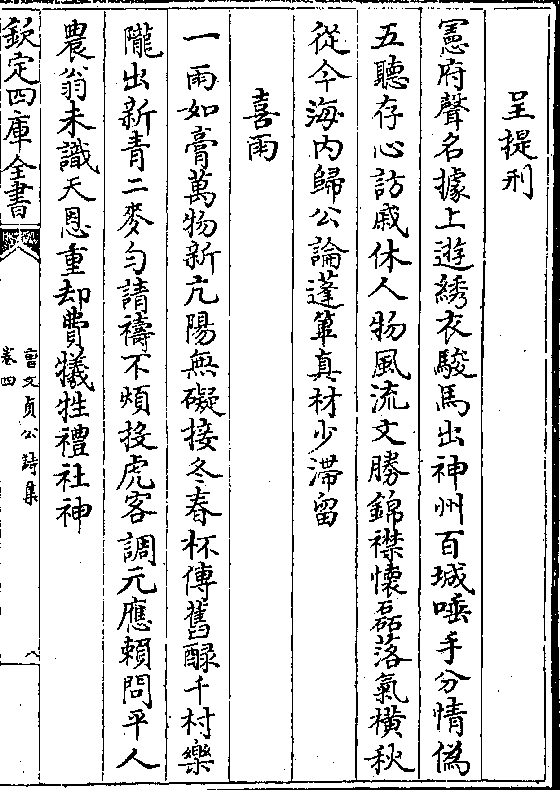 呈提刑
憲府聲名據上遊綉衣駿馬出神州百城唾手分情偽
五聽存心訪戚休人物風流文勝錦襟懷磊落氣橫秋
從今海内歸公論蓬蓽真材少滯留
喜雨
一雨如膏萬物新亢陽無礙接冬春杯傳舊醁千村樂
隴出新青二麥勻請禱不煩投虎客調元應賴問平人
農翁未識天恩重却費犧牲禮社神
欽定四庫全書
曹文貞公詩集
卷四
八